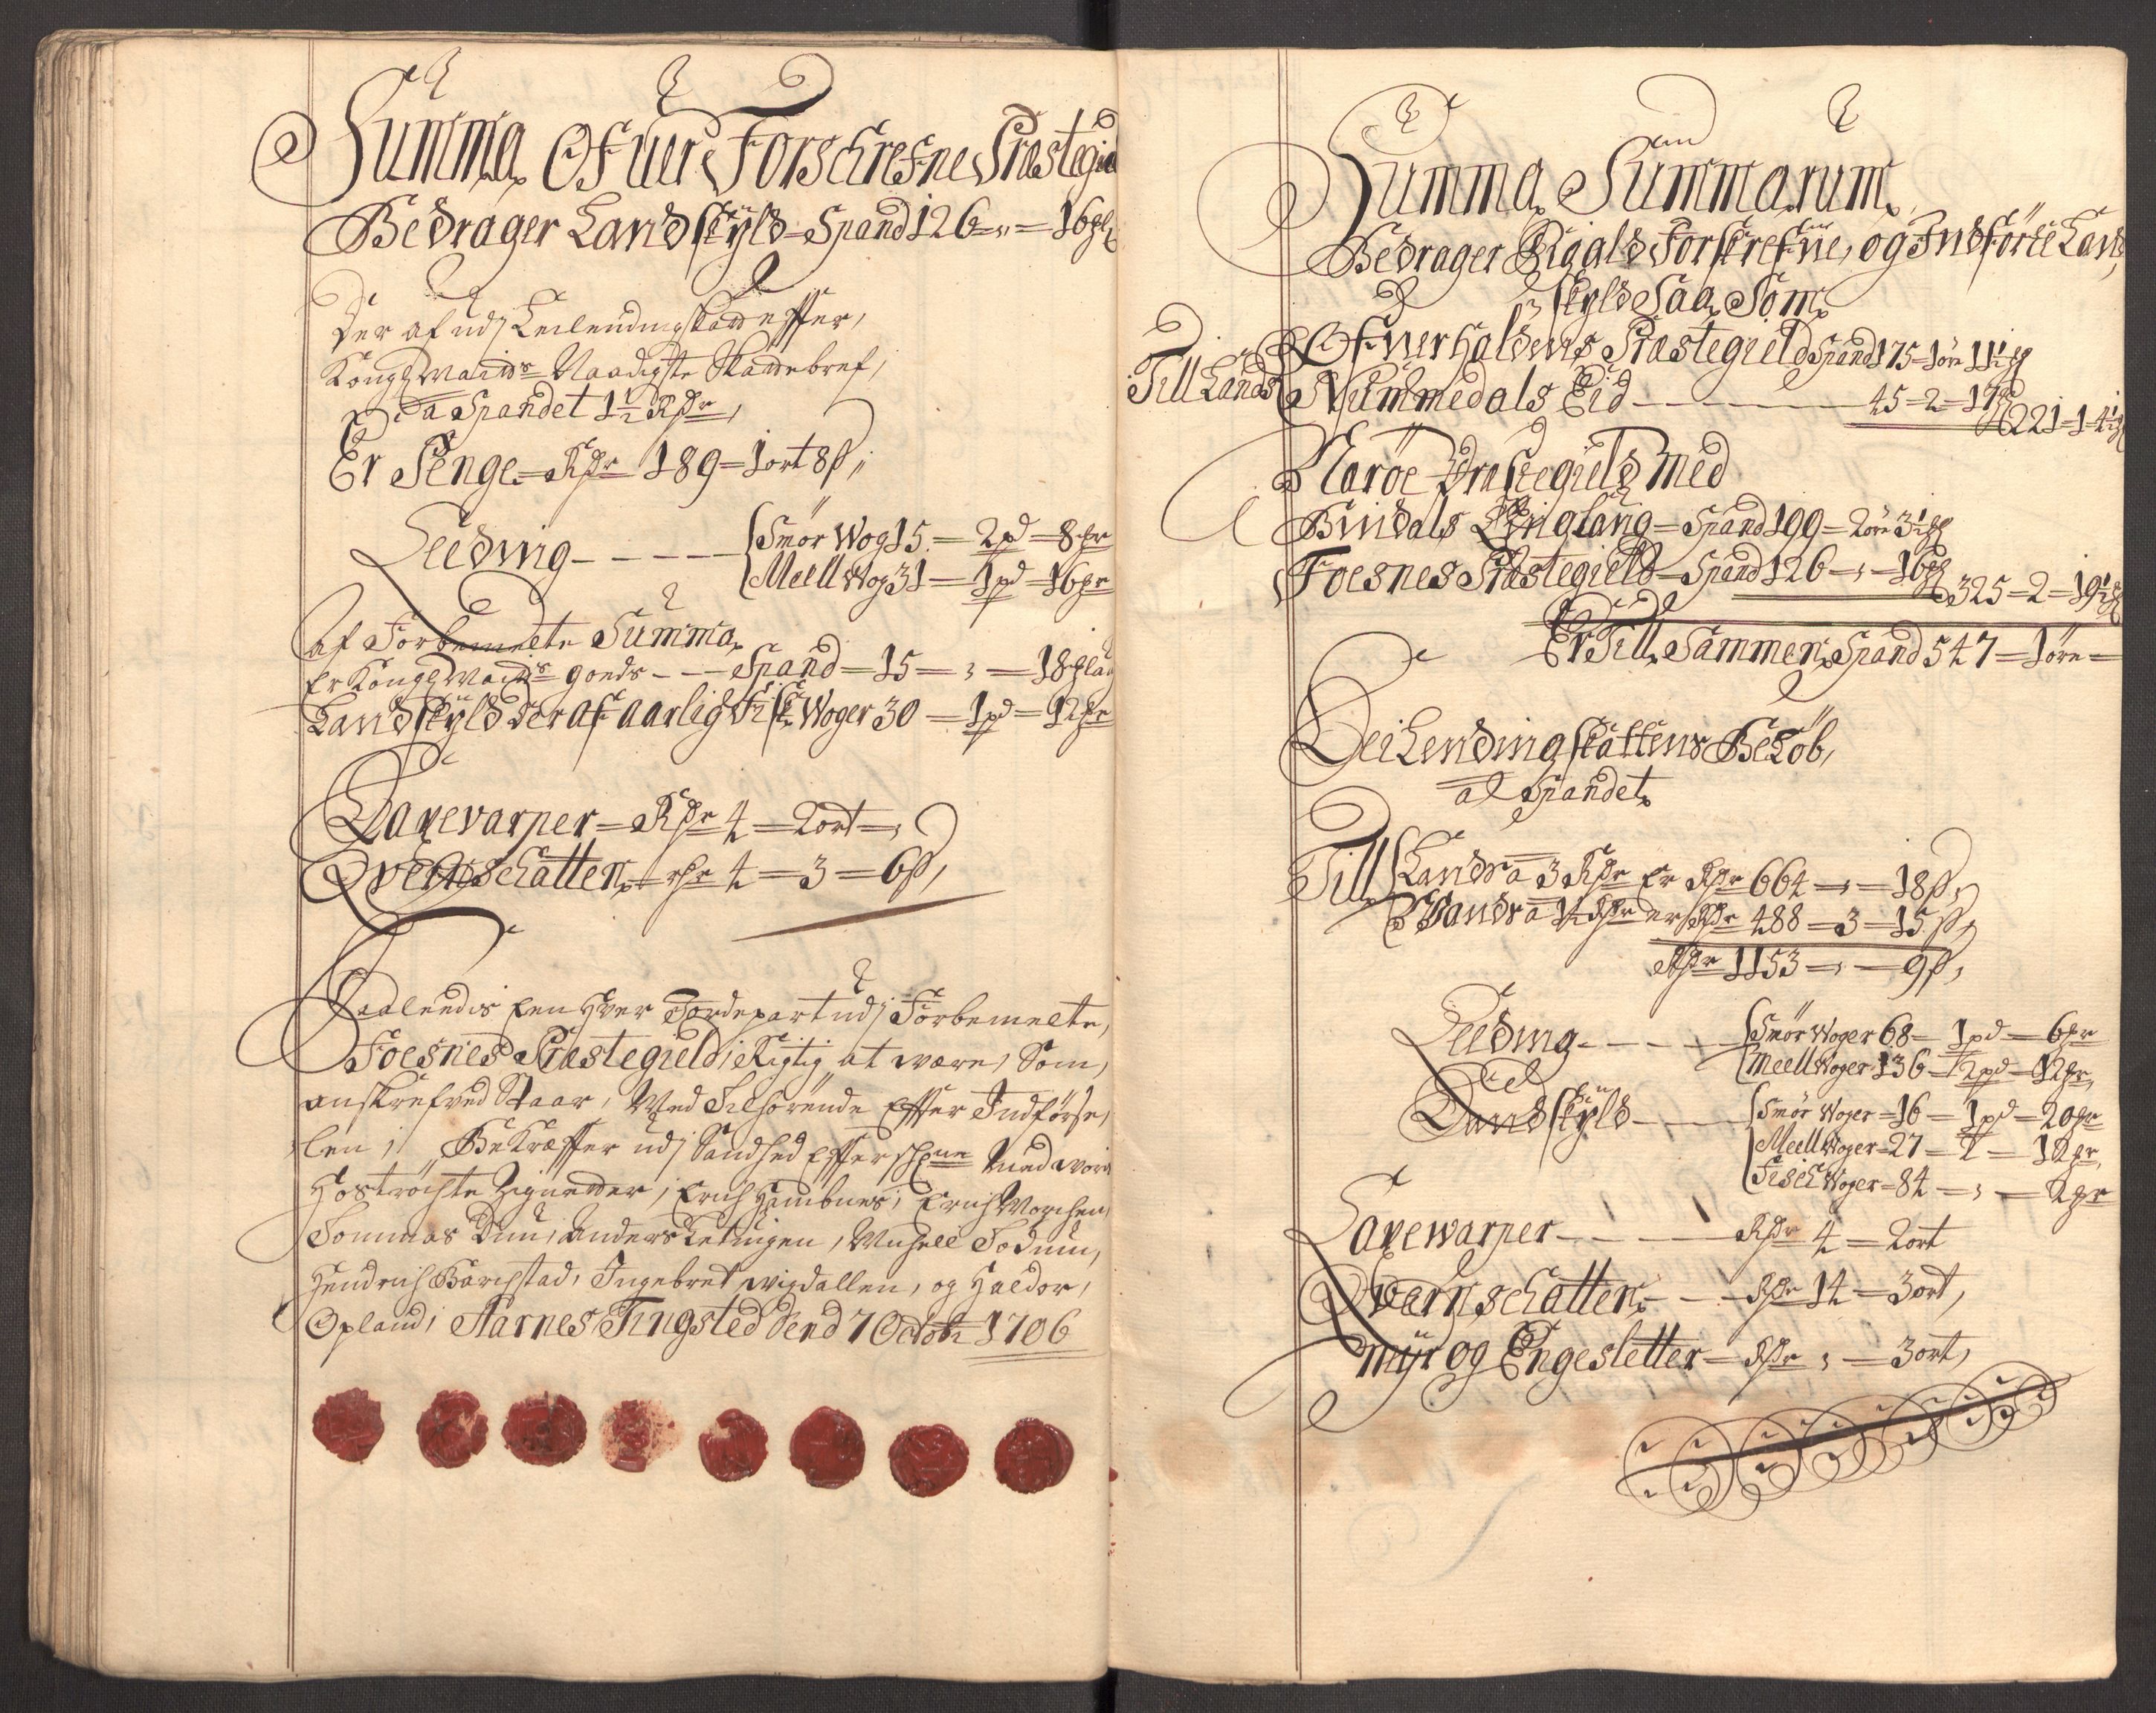 Summa Ofuer Forschrefne Præstegie
Bedrager Landskÿld = Spand 126 = „ = 16 gl
Der af udj Leilendingskatt effter,
Kongl Maÿtts Naadigste Skattebref,
a Spandet 1½ Rdr,
Er Penge = Rdr 189 = 1 ort 8 ß,
Leeding - - - - Smör Wog 15 = 2 pd = 8 mr
Meell Wog 31 = 1 pd = 16 mr
af Forbemelte Summa
Er Kongl Maÿtts goeds - - - Spand = 15 = „ = 18 mlag
Landskÿld der af aarlig Fisk Woger 30 = 1 pd = 12 mr
Laxevarper = Rdr 4 = 2 ort = „
Qvernschatten = rdr 4 = 3 = 6 ß,
Saaleedis Een Hver Jordepart udj Forbemelte,
Foesnes Præstegield, Rigtig at were, Som,
anskrefved Staar, Med Tilhörende Effter Indförse,
len, Bekræffter udj Sandhed
Hoströchte Zignetter, Erich
Tommas Duun, Anders
Hendrich Barchstad, Ingebret Wigdallen, og Haldor,
Opland, Aarnes Tingsted dend 7 Octobr 1706
Summa Summarum
Bedrager Forskrefne, og Indförte Land
skyld Saa Som
Ofverhaldens Præstegield Spand 175 = 1 öre 11½ gl
Till Lands
Nummedals Eid - - - 45 = 2 = 17 gl
221 = 1 = 4½ gl
Naröe Præstegield Med
Bindals Tinglaug = Spand 199 = 2 öre 3½ gl
Foesnes Præstegield = Spand 126 = „ = 16 gl
325 = 2 = 19½ gl
Er Till Sammen Spand 547 = 1 öre =
Leilendingskattens Belöb,
al Spandet
Till Lands a 3 Rdr Er Rdr 664 = „ = 18 ß,
Vands a 1½ Rdr er Rdr 488 = 3 = 15 ß,
Rdr 1153 = „ = 9 ß,
Leeding - - - - Smör Woger 68 = 1 pd = 6 mr
Meell Woger 136 = 2 pd = 12 mr,
Landskÿld - - - Smör Woger = 16 = 1 pd = 20 mr
Meell Woger = 27 = 2 = 12 mr,
Fisch Woger = 84 = „ = 2 mr
Laxewarper - - - - Rdr 4 = 2 ort
Qvernschatten - - - Rdr 14 = 3 ort,
Myr og Engesletter = Rdr „ = 3 ort,